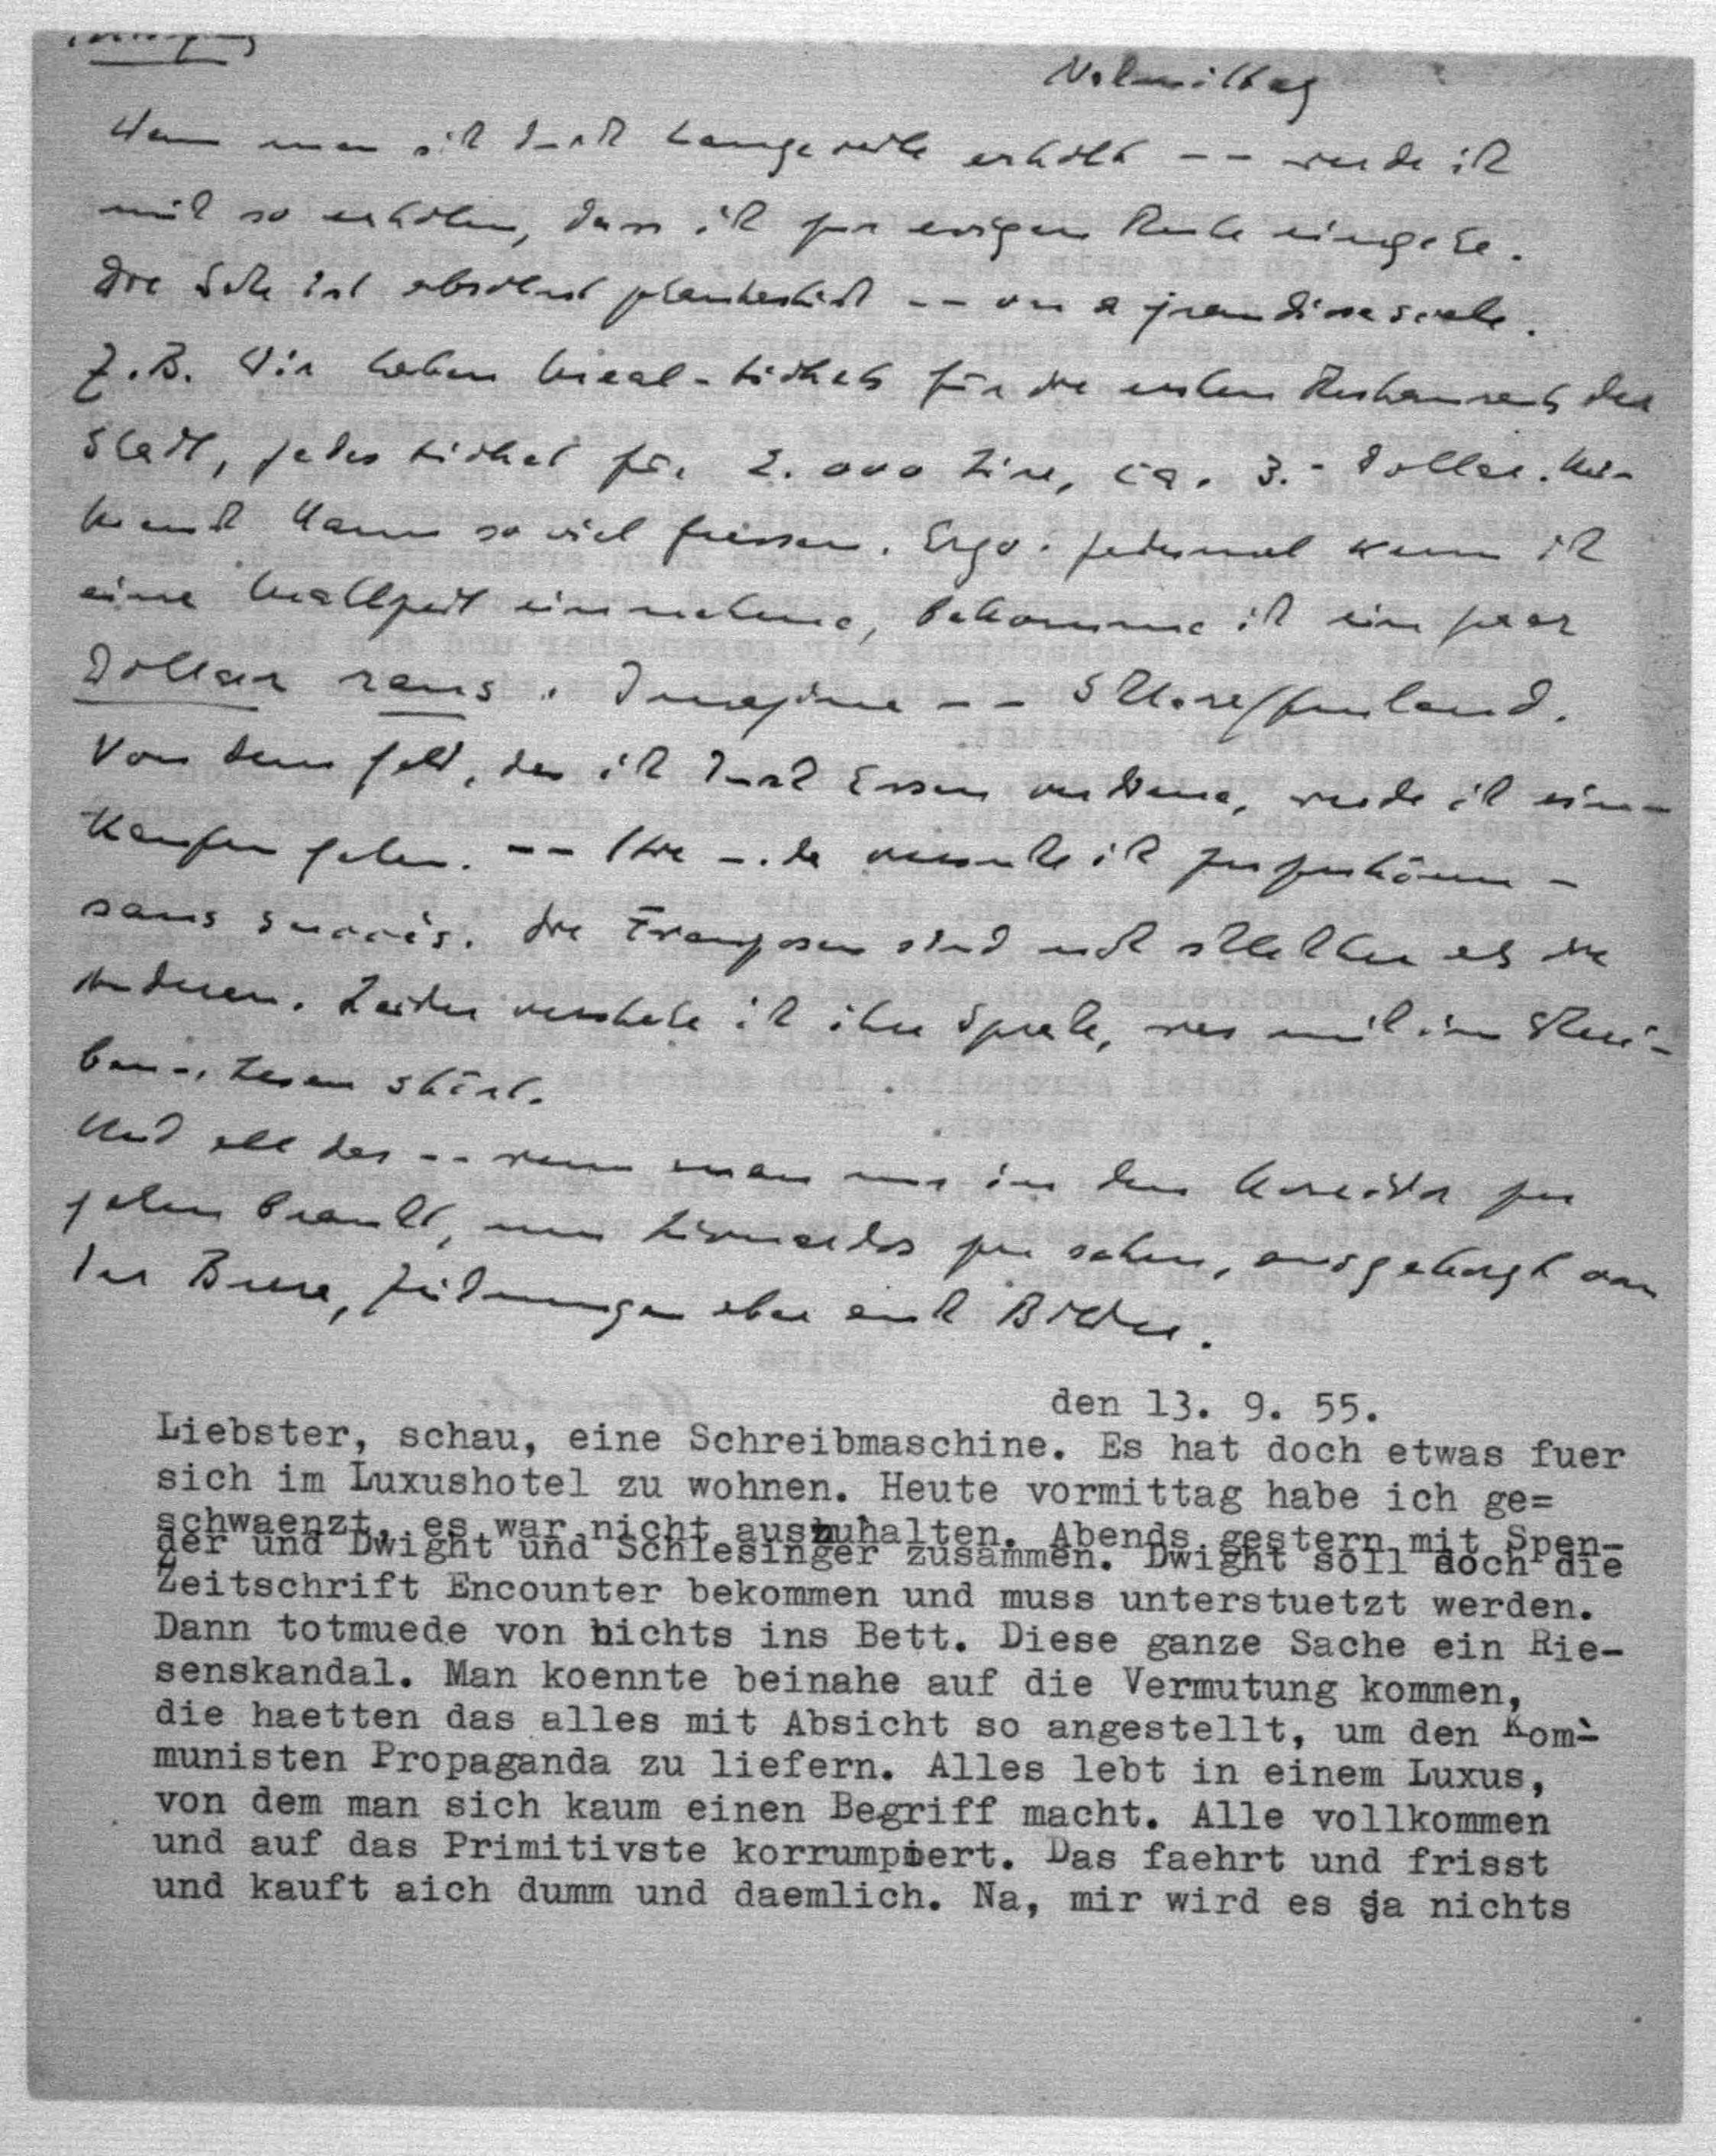 Nachmittag
Wenn man sich durch Langeweile erholt -- werde ich
mich so erholen, dass ich zur ewigen Ruhe eingehe.
Die Sache ist absolut phantastisch -- on a grandiose scale.
Z.B. Wir haben Meal-tickets für die ersten Restaurants der
Stadt, jedes ticket für 2.000 Lire, ca. 3.- Dollar. Kein
Mensch kann so viel fressen. Ergo: jedesmal wenn ich
eine Mahlzeit einnehme, bekomme ich ein paar
Dollar raus. Imagine -- Schlaraffenland.
Von dem Geld, das ich durch Essen verdiene, werde ich ein-
kaufen gehen. -- Hie u. da versuche ich zuzuhören -
sans succès. Die Franzosen sind noch schlechter als die
Anderen. Leider verstehe ich ihre Sprache, was mich im Schrei-
ben u. Lesen stört.
Und all das -- wenn man nur in den Korridor zu
gehen braucht, um Leonardos zu sehen, ausgeborgt von
der Brera, Zeichnungen aber auch Bilder.
den 13. 9. 55.
Liebster, schau, eine Schreibmaschine. Es hat doch etwas fuer
sich im Luxushotel zu wohnen. Heute vormittag habe ich ge=
schwaenzt, es war nicht auszuhalten. Abends gestern mit Spen-
der und Dwight und Schlesinger zusammen. Dwight soll doch die
Zeitschrift Encounter bekommen und muss unterstuetzt werden.
Dann totmuede von nichts ins Bett. Diese ganze Sache ein Rie-
senskandal. Man koennte beinahe auf die Vermutung kommen,
die haetten das alles mit Absicht so angestellt, um den Kom-
munisten Propaganda zu liefern. Alles lebt in einem Luxus,
von dem man sich kaum einen Begriff macht. Alle vollkommen
und auf das Primitivste korrumpiert. Das faehrt und frisst
und kauft aich dumm und daemlich. Na, mir wird es ja nichts